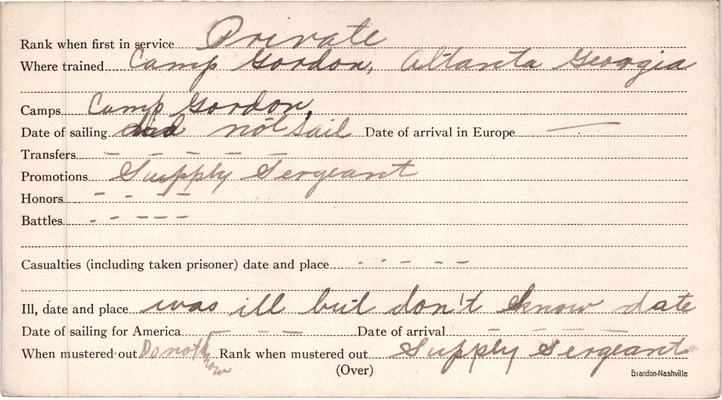 Rank when first in service Private
Where trained Camp Gordon, Atlanta Georgia
Camps Camp Gordon,
Date of sailing did not sail Date of arrival in Europe —
Transfers - - - - -
Promotions Supply Sergeant
Honors - - - -
Battles - - - - -
Casualties (including taken prisoner) date and place - - - - -
Ill, date and place was ill but don't know date
Date of sailing for America - - - Date of arrival - - - -
When mustered out Do not know Rank when mustered out Supply Sergeant
(Over) Brandon-Nashville